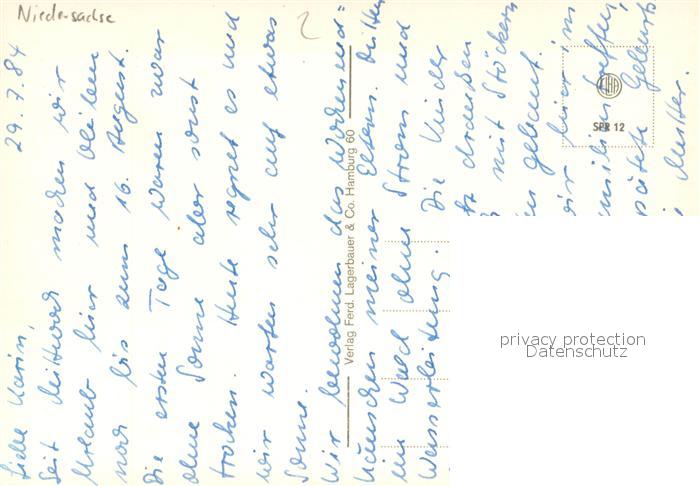 Niedersachse
2
29.7.84
Liebe Karin,
Seit Mittwoch machen wir
Urlaub hier und bleiben
noch bis zum 16. August.
Die ersten Tage waren zwar
ohne Sonne aber sonst
trocken. Heute regnet es und
wir warten sehr auf etwas
Sonne.
Wir bewohnen das Wochenend=
häuschen meiner Eltern. Mitten
im Wald ohne Strom und
Wasserleitung. Die Kinder
draußen
mit Stöckern
gebaut.
wir hier in
treffen,
später Geburts
Mutter.
Verlag Ferd. Lagerbauer & Co. Hamburg 60
SPR 12
privacy protection
Datenschutz